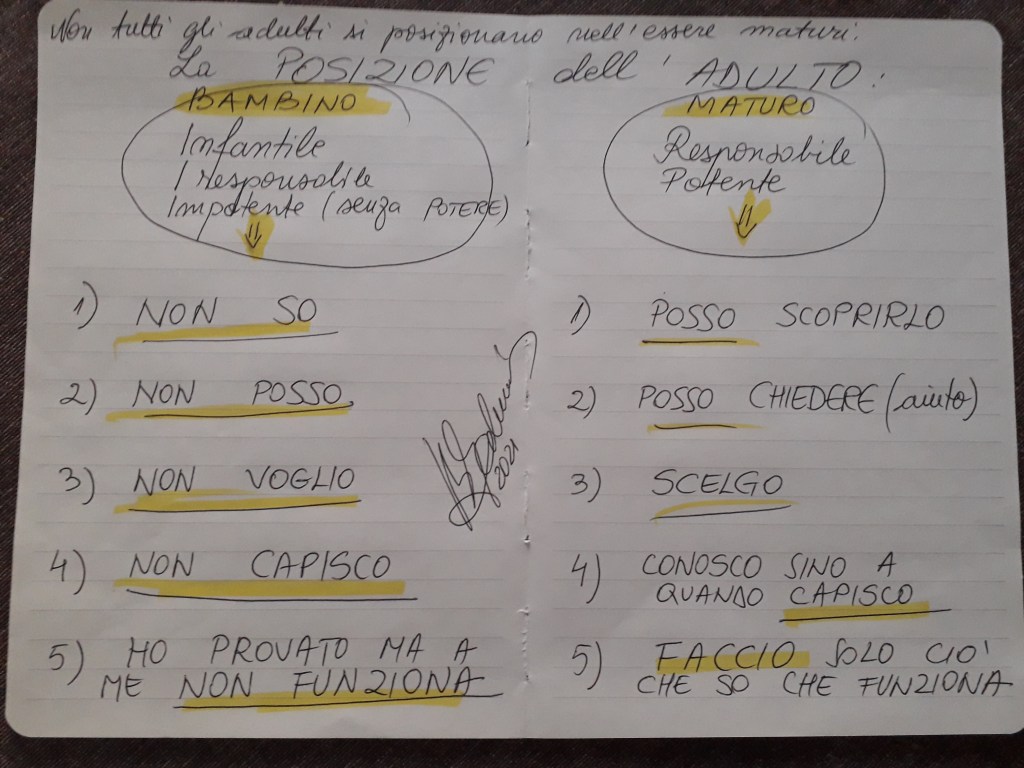 Non tutti gli adulti si posizionano nell'essere maturi:
La POSIZIONE dell' ADULTO:
BAMBINO
Infantile
Irresponsabile
Impotente (senza POTERE)
⇓
1) NON SO
2) NON POSSO
3) NON VOGLIO
4) NON CAPISCO
5) HO PROVATO MA A
ME NON FUNZIONA
2021
MATURO
Responsabile
Potente
⇓
1) POSSO SCOPRIRLO
2) POSSO CHIEDERE (aiuto)
3) SCELGO
4) CONOSCO SINO A
QUANDO CAPISCO
5) FACCIO SOLO CIO'
CHE SO CHE FUNZIONA